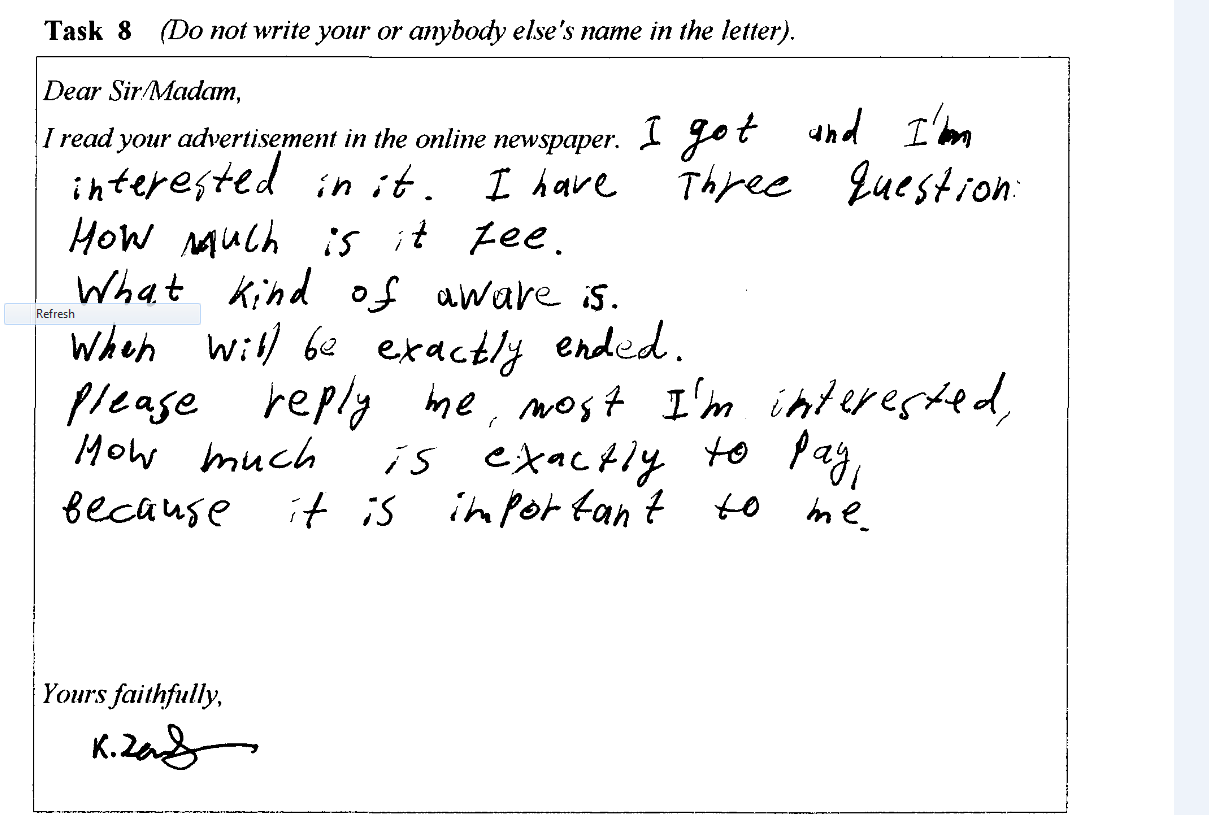 Task 8 (Do not write your or anybody else's name in the letter).
Dear Sir/Madam,
I read your advertisement in the online newspaper. I got and I'm
interested in it. I have Three question:
How much is it fee.
What kind of aware is.
Refresh
When will be exactly ended.
please reply me, most I'm interested,
How much is exactly to pay,
because it is important to me.
Yours faithfully,
K.